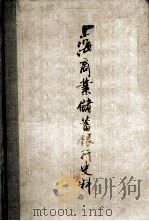 上海商業儲蓄銀行史料